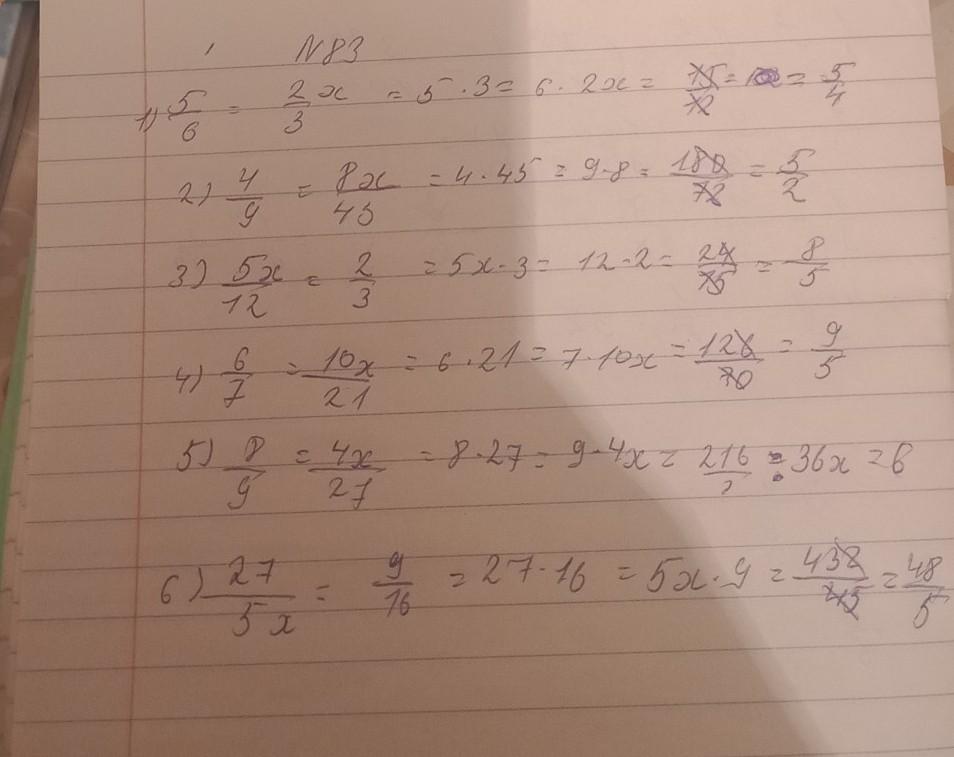 N83
1) 5/6 = 2/3 x = 5 · 3 = 6 · 2x = 15/12 = = 5/4
2) 4/9 = 8x/45 = 4 · 45 = 9 · 8 = 180/72 = 5/2
3) 5x/12 = 2/3 = 5x · 3 = 12 · 2 = 24/15 = 8/5
4) 6/7 = 10x/21 = 6 · 21 = 7 · 10x = 126/70 = 9/5
5) 8/9 = 4x/27 = 8 · 27 = 9 · 4x = 216 : 36x = 6
6) 27/5x = 9/16 = 27 · 16 = 5x · 9 = 432/45 = 48/5